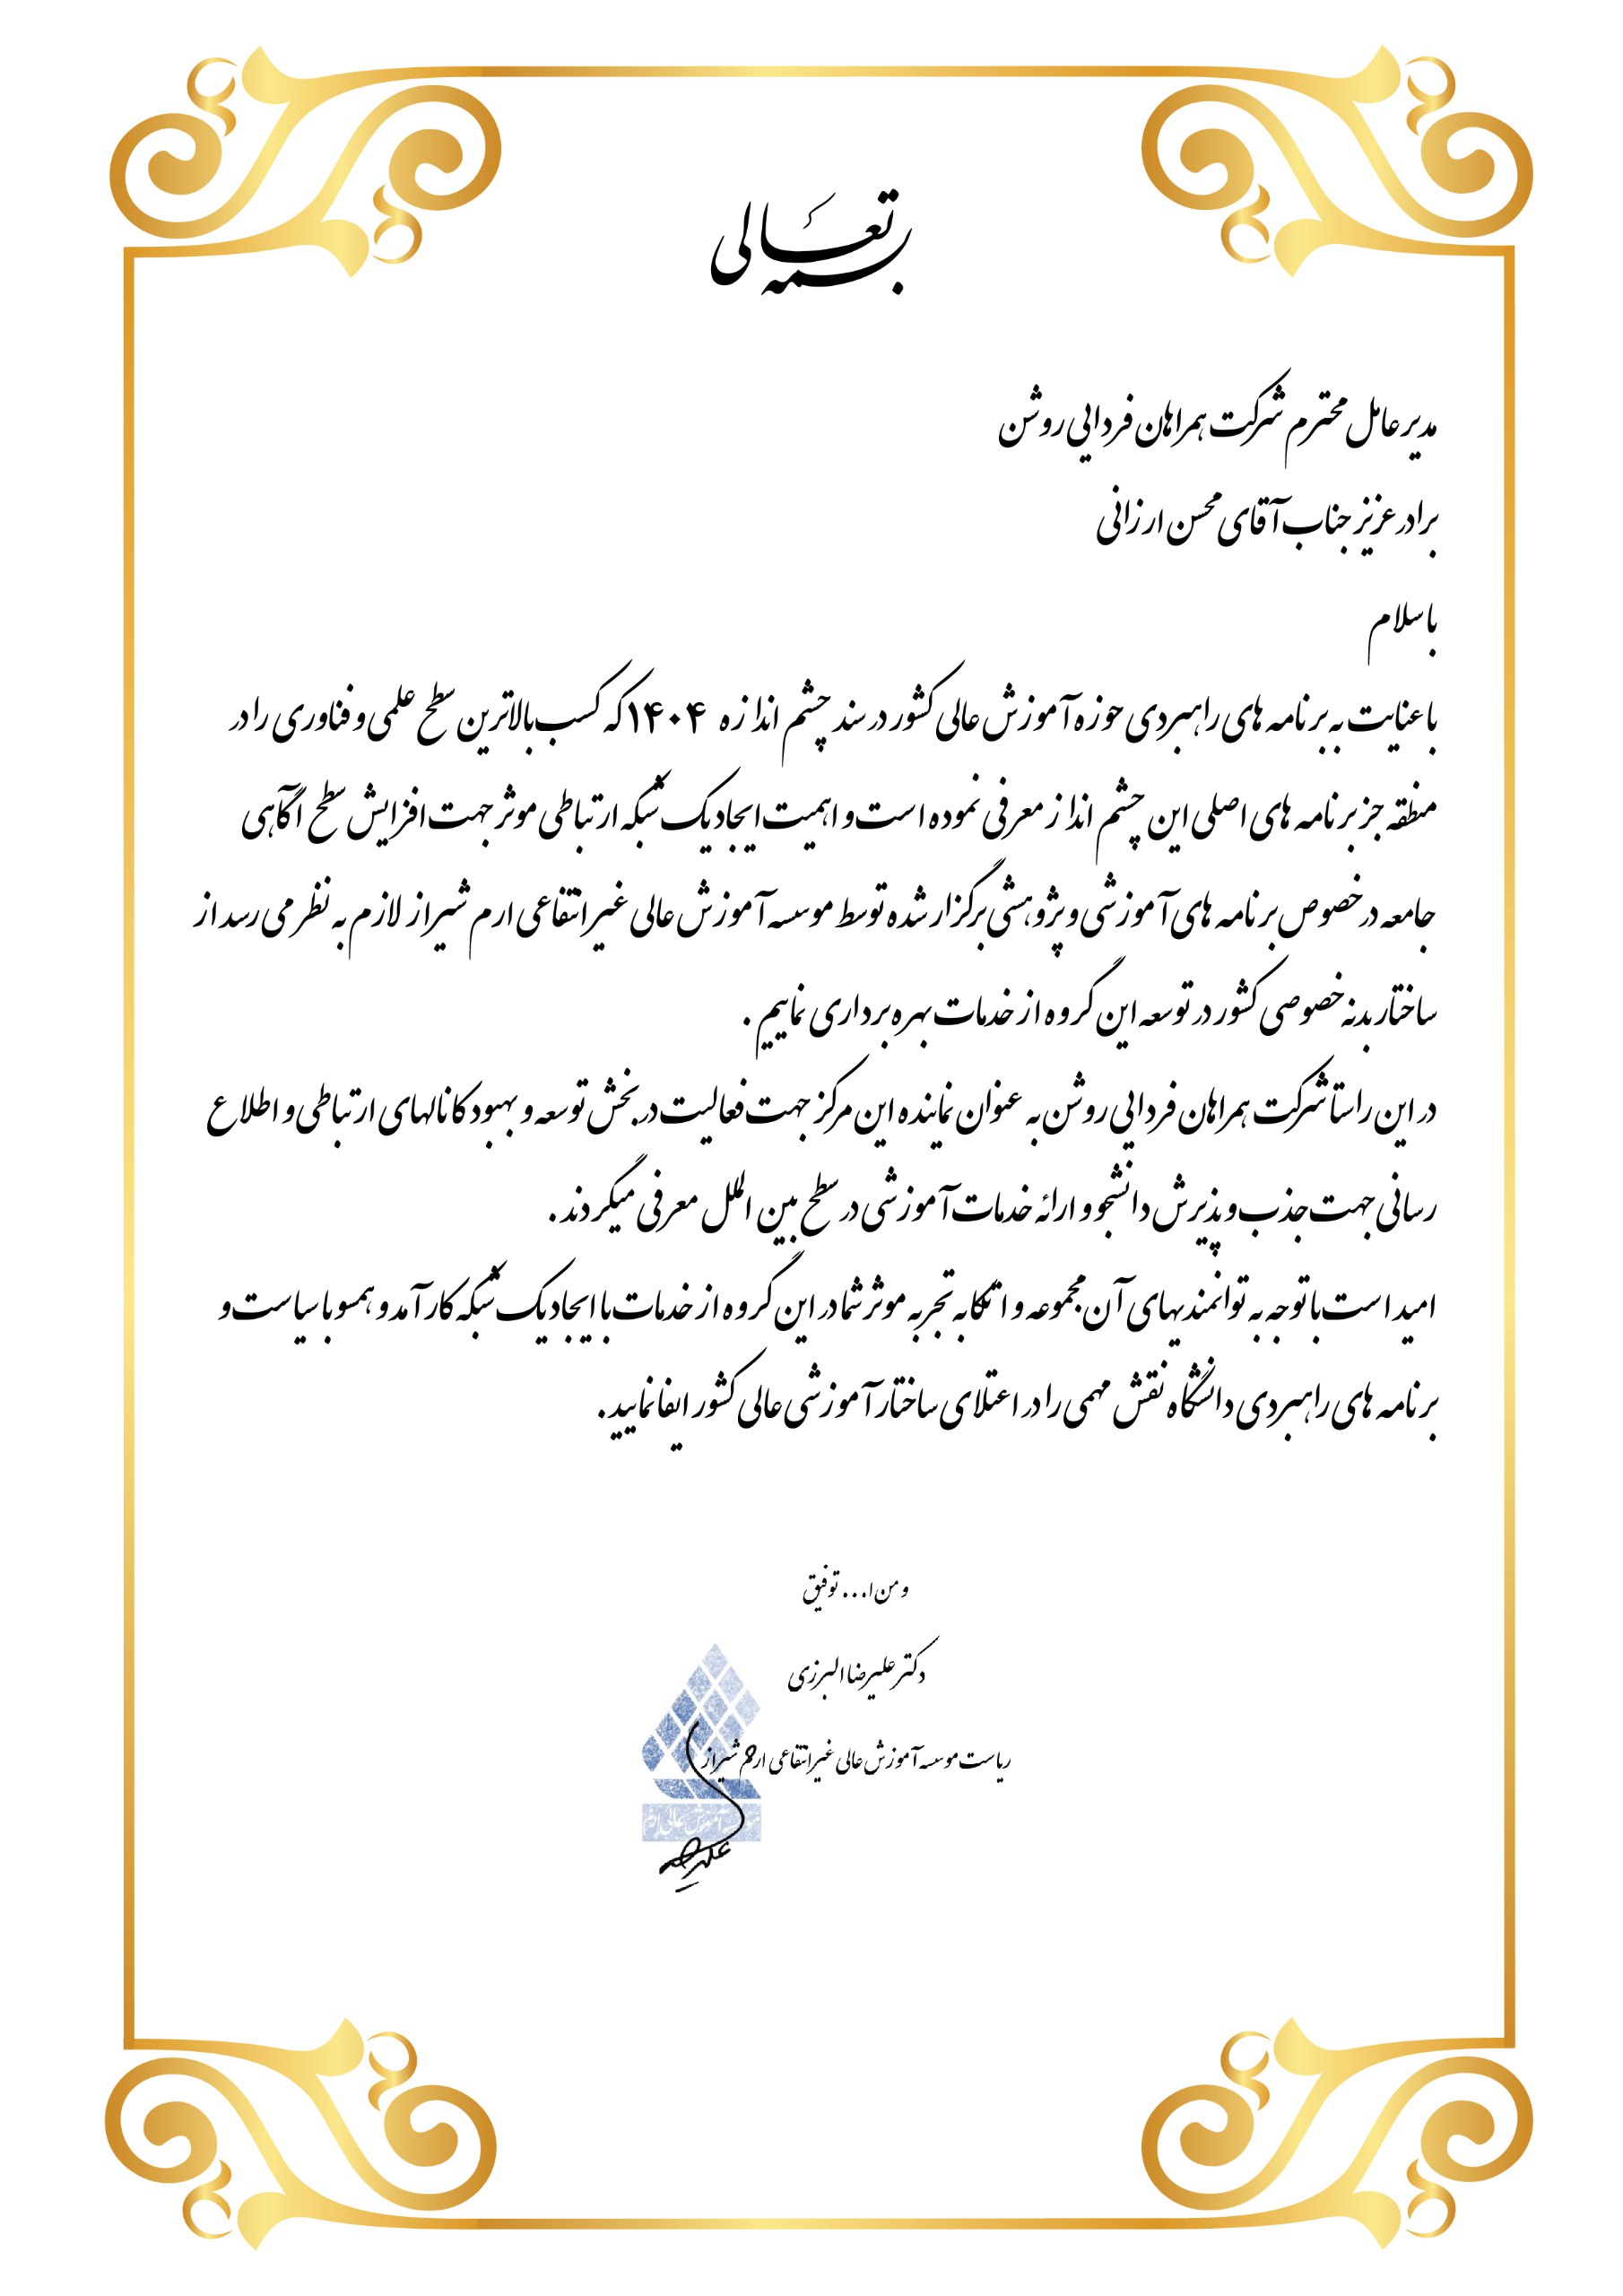 بسمه تعالی
مدیر عامل محترم شرکت همراهان فردایی روشن
برادر عزیز جناب آقای محسن ارزانی
با سلام
با عنایت به برنامه های راهبردی حوزه آموزش عالی کشور در سند چشم اندازه ۱۴۰۴ که کسب بالاترین سطح علمی و فناوری را در
منطقه جز برنامه های اصلی این چشم انداز معرفی نموده است و اهمیت ایجاد یک شبکه ارتباطی موثر جهت افزایش سطح آگاهی
جامعه در خصوص برنامه های آموزشی و پژوهشی برگزار شده توسط موسسه آموزش عالی غیرانتفاعی ارم شیراز لازم به نظر می رسد از
ساختار بدنه خصوصی کشور در توسعه این گروه از خدمات بهره برداری نماییم .
در این راستا شرکت همراهان فردایی روشن به عنوان نماینده این مرکز جهت فعالیت در بخش توسعه و بهبود کانالهای ارتباطی و اطلاع
رسانی جهت جذب و پذیرش دانشجو و ارائه خدمات آموزشی در سطح بین الملل معرفی میگردند.
امید است با توجه به توانمندیهای آن مجموعه و اتکا به تجربه موثر شما در این گروه از خدمات با ایجاد یک شبکه کارآمد و همسو با سیاست و
برنامه های راهبردی دانشگاه نقش مهمی را در اعتلای ساختار آموزشی عالی کشور ایفا نمایید.
و من ا... توفیق
دکتر علیرضا البرزی
ریاست موسسه آموزش عالی غیرانتفاعی ارم شیراز
موسسه آموزش عالی ارم